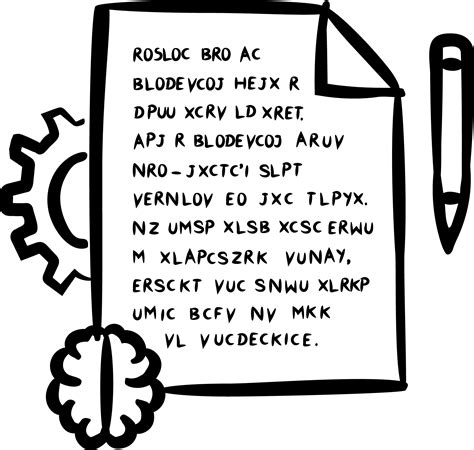 ROSLOC BRO AC
BLODEVCOJ HEJX R
DPUU XCRV LD XRET.
APJ R BLODEVCOJ ARUV
NRO-JXCTC'I SLPT
VERNLOV EO JXC TLPYX.
NZ UMSP XLSB XCSC ERWU
M XLAPCSZRK VUNAY,
ERSCKT VUC SNWU XLRKP
UMIC BCFV NV MKK
VL VUCDECKICE.